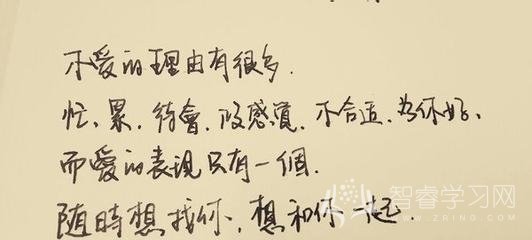 不爱的理由有很多.
忙、累、待會、没感覚、不合适、为你好、
而愛的表现只有一個.
随時想找你、想和你一起.
智睿学习网
WWW.ZRING.COM